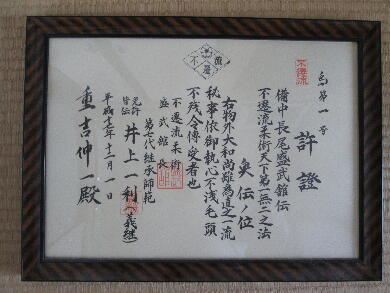 不遷流
為第一号
許證
備中長尾盛武舘伝
不遷流柔術天下第一無二之法
奥伝ノ位
右物外大和尚雖為直之一流
秘事依御執心不浅毛頭
不残令傳受者也
不遷流柔術
盛武館長
第七代継承師範
免許
皆伝
井上一利
義継
平成十三年十二月一日
重吉伸一殿